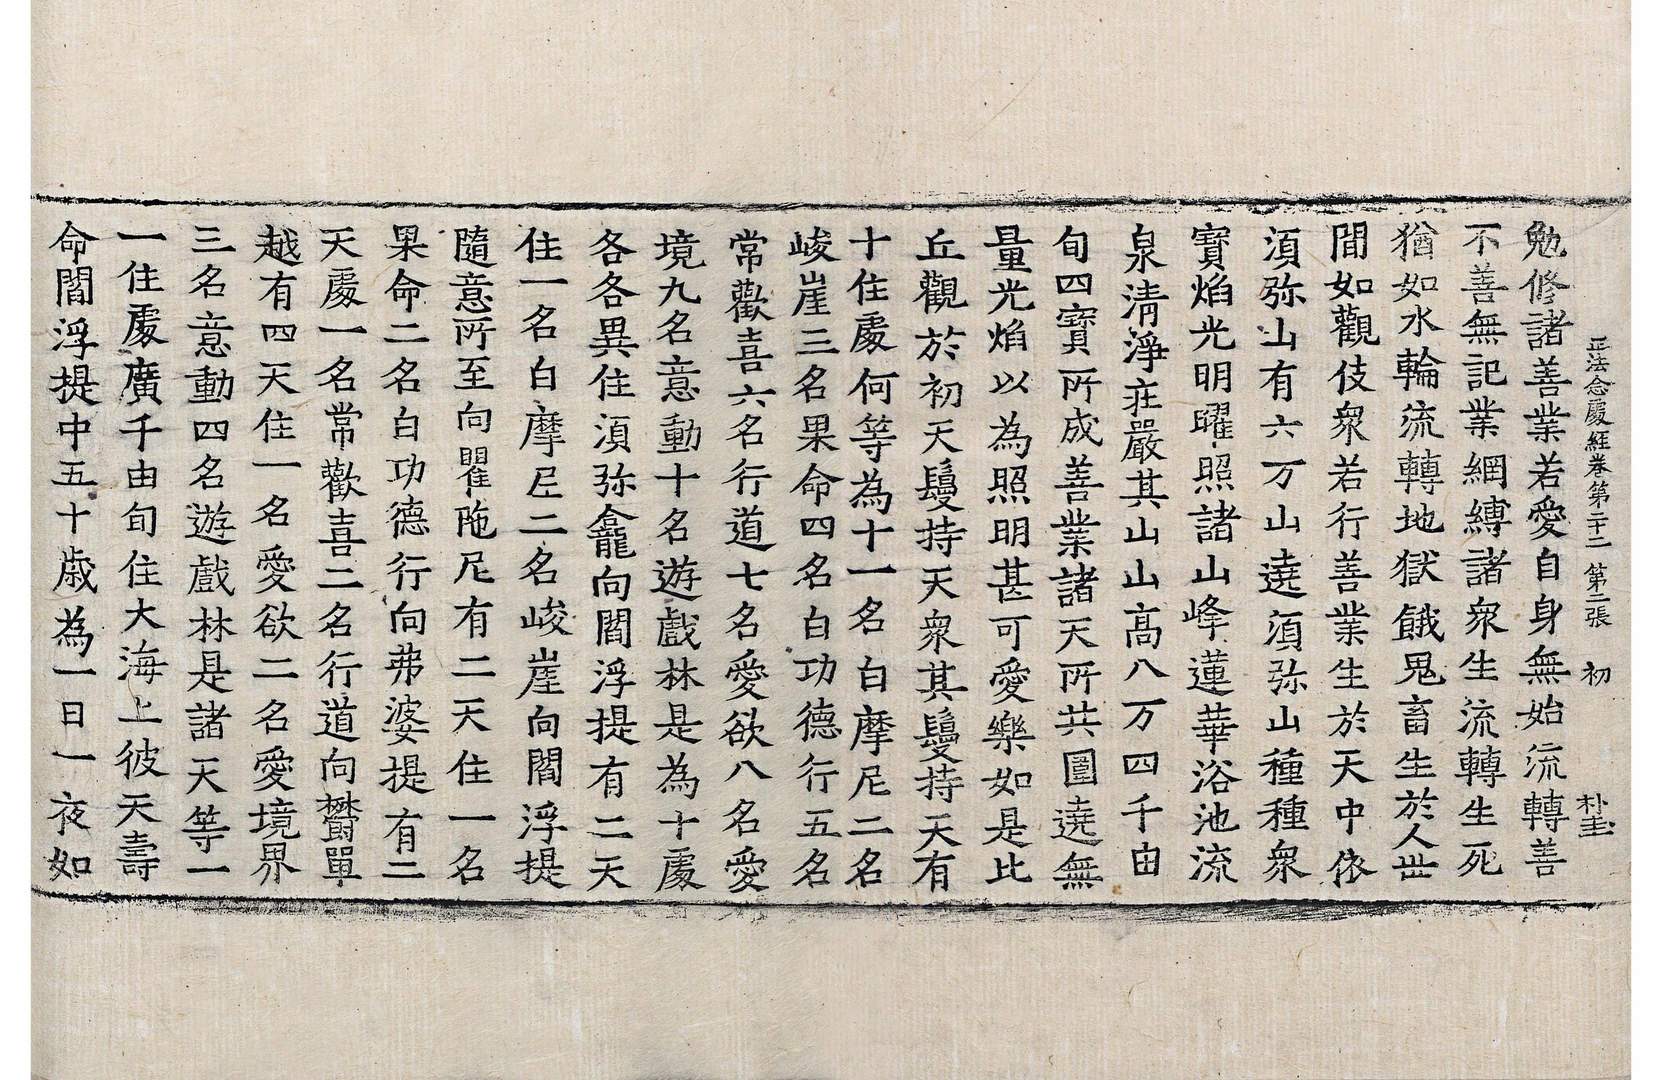 正法念處経卷第二十二 第二張 初 朴圭
勉修諸善業若愛自身無始流轉善
不善無記業網縛諸衆生流轉生死
猶如水輪流轉地獄餓鬼畜生於人世
間如觀伎衆若行善業生於天中依
湏弥山有六万山遶湏弥山種種衆
寳焰光明曜照諸山峰蓮華浴池流
泉清淨莊嚴其山山髙八万四千由
旬四寳所成善業諸天所共圍遶無
量光焰以為照明甚可愛樂如是比
丘觀於初天鬘持天衆其鬘持天有
十住處何等為十一名白摩尼二名
峻崖三名果命四名白功德行五名
常歡喜六名行道七名愛欲八名愛
境九名意動十名遊戲林是為十處
各各異住湏弥龕向閻浮提有二天
住一名白摩尼二名峻崖向閻浮提
隨意所至向瞿陁尼有二天住一名
果命二名白功德行向弗婆提有二
天處一名常歡喜二名行道向欝單
越有四天住一名愛欲二名愛境界
三名意動四名遊戲林是諸天等一
一住處廣千由旬住大海上彼天壽
命閻浮提中五十歳為一日一夜如